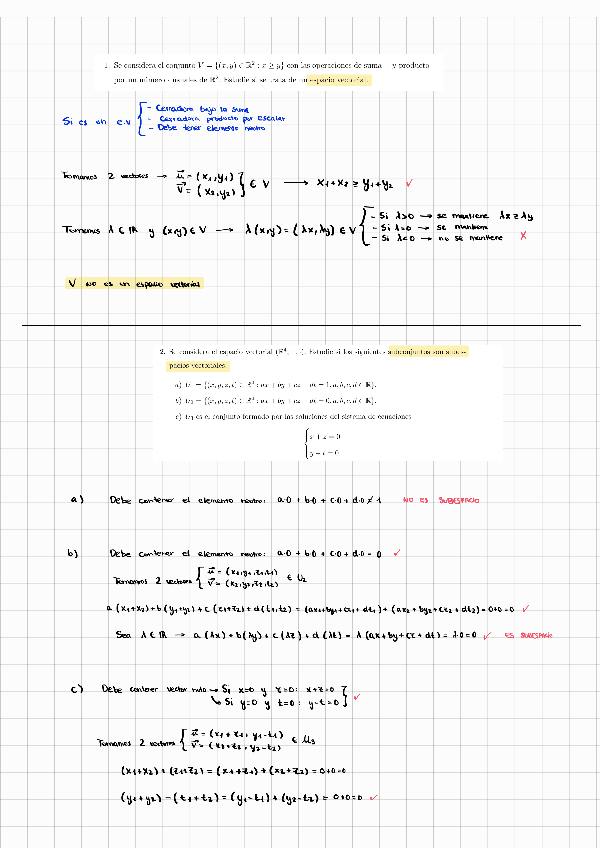 1. Se considera el conjunto V = {(x, y) ∈ ℝ² : x ≥ y} con las operaciones de suma + y producto
por un número usuales de ℝ². Estudie si se trata de un espacio vectorial.
Si es un e.v
- Cerradura bajo la suma
- Cerradura producto por escalar
- Debe tener elemento neutro
Tomamos 2 vectores → u⃗ = (x₁,y₁)
v⃗ = (x₂,y₂)
∈ V → x₁+x₂ ≥ y₁+y₂ ✓
Tomamos λ ∈ ℝ y (x,y) ∈ V → λ(x,y) = (λx,λy) ∈ V
- Si λ>0 → se mantiene λx ≥ λy
- Si λ=0 → se mantiene
- Si λ<0 → no se mantiene ✗
V no es un espacio vectorial
2. Se considera el espacio vectorial (ℝ⁴, +, ·). Estudie si los siguientes subconjuntos son subes-
pacios vectoriales:
a) U₁ = {(x, y, z, t) ∈ ℝ⁴ : ax + by + cz + dt = 1, a, b, c, d ∈ ℝ}.
b) U₂ = {(x, y, z, t) ∈ ℝ⁴ : ax + by + cz + dt = 0, a, b, c, d ∈ ℝ}.
c) U₃ es el conjunto formado por las soluciones del sistema de ecuaciones
x + z = 0
y − t = 0
a) Debe contener el elemento neutro: a·0 + b·0 + c·0 + d·0 ≠ 1 NO ES SUBESPACIO
b) Debe contener el elemento neutro: a·0 + b·0 + c·0 + d·0 = 0 ✓
Tomamos 2 vectores
u⃗ = (x₁,y₁,z₁,t₁)
v⃗ = (x₂,y₂,z₂,t₂)
∈ U₂
a(x₁+x₂)+b(y₁+y₂)+c(z₁+z₂)+d(t₁,t₂) = (ax₁+by₁+cz₁+dt₁)+(ax₂+by₂+cz₂+dt₂) = 0+0=0 ✓
Sea λ ∈ ℝ → a(λx)+b(λy)+c(λz)+d(λt) = λ(ax+by+cz+dt) = λ·0=0 ✓ ES SUBESPACIO
c) Debe contener vector nulo → Si x=0 y z=0: x+z=0
↳ Si y=0 y t=0: y-t=0 ✓
Tomamos 2 vectores
u⃗ = (x₁+z₁, y₁-t₁)
v⃗ = (x₂+z₂, y₂-t₂)
∈ U₃
(x₁+x₂)+(z₁+z₂) = (x₁+z₁)+(x₂+z₂) = 0+0=0
(y₁+y₂)-(t₁+t₂) = (y₁-t₁)+(y₂-t₂) = 0+0=0 ✓